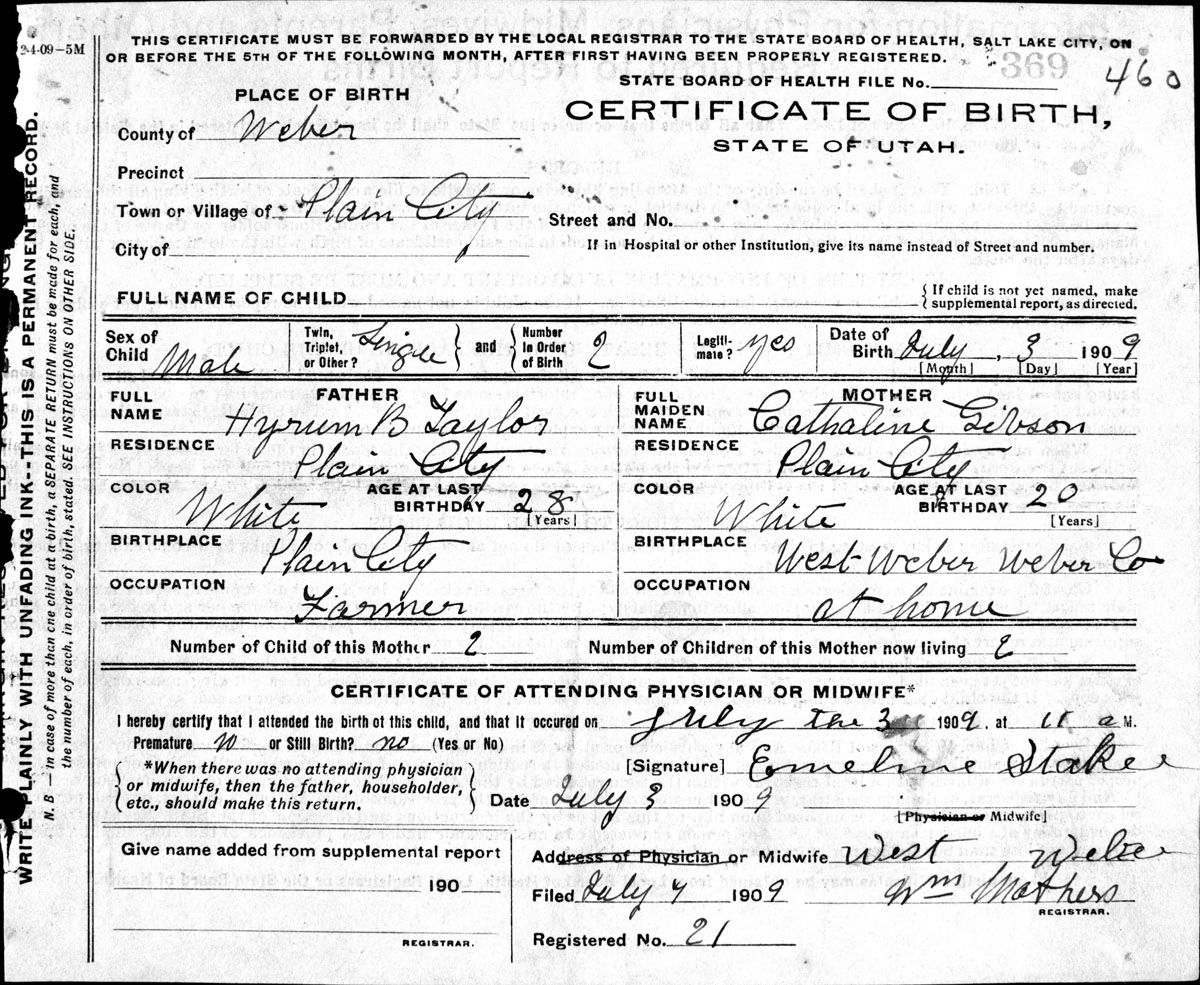 2-4-09-5M
THIS CERTIFICATE MUST BE FORWARDED BY THE LOCAL REGISTRAR TO THE STATE BOARD OF HEALTH, SALT LAKE CITY, ON
OR BEFORE THE 5TH OF THE FOLLOWING MONTH, AFTER FIRST HAVING BEEN PROPERLY REGISTERED.
369
460
STATE BOARD OF HEALTH FILE No.
PLACE OF BIRTH
CERTIFICATE OF BIRTH,
STATE OF UTAH.
County of Weber
Precinct
Town or Village of Plain City
Street and No.
City of
If in Hospital or other Institution, give its name instead of Street and number.
FULL NAME OF CHILD
{ If child is not yet named, make
supplemental report, as directed.
Sex of Child Male
Twin, Triplet, or Other? Single } and { Number in Order of Birth 2
Legiti-mate? yes
Date of Birth July, 3 1909
[Month] [Day] [Year]
FATHER
FULL NAME Hyrum B Taylor
RESIDENCE Plain City
COLOR White
AGE AT LAST BIRTHDAY 28 [Years]
BIRTHPLACE Plain City
OCCUPATION Farmer
MOTHER
FULL MAIDEN NAME Cathaline Gibson
RESIDENCE Plain City
COLOR White
AGE AT LAST BIRTHDAY 20 [Years]
BIRTHPLACE West Weber Weber Co
OCCUPATION at home
Number of Child of this Mother 2
Number of Children of this Mother now living 2
CERTIFICATE OF ATTENDING PHYSICIAN OR MIDWIFE*
I hereby certify that I attended the birth of this child, and that it occured on july the 3 1909, at 11 a M.
Premature no or Still Birth? no (Yes or No)
{ *When there was no attending physician
or midwife, then the father, householder,
etc., should make this return. }
[Signature] Emeline Stake
Date July 3 1909
[Physician or Midwife]
Give name added from supplemental report
190
REGISTRAR.
Address of Physician or Midwife West Weber
Filed July 7 1909 Wm Mathers
REGISTRAR.
Registered No. 21
WRITE PLAINLY WITH UNFADING INK--THIS IS A PERMANENT RECORD.
N. B — in case of more than one child at a birth, a SEPARATE RETURN must be made for each, and
the number of each, in order of birth, stated. SEE INSTRUCTIONS ON OTHER SIDE.